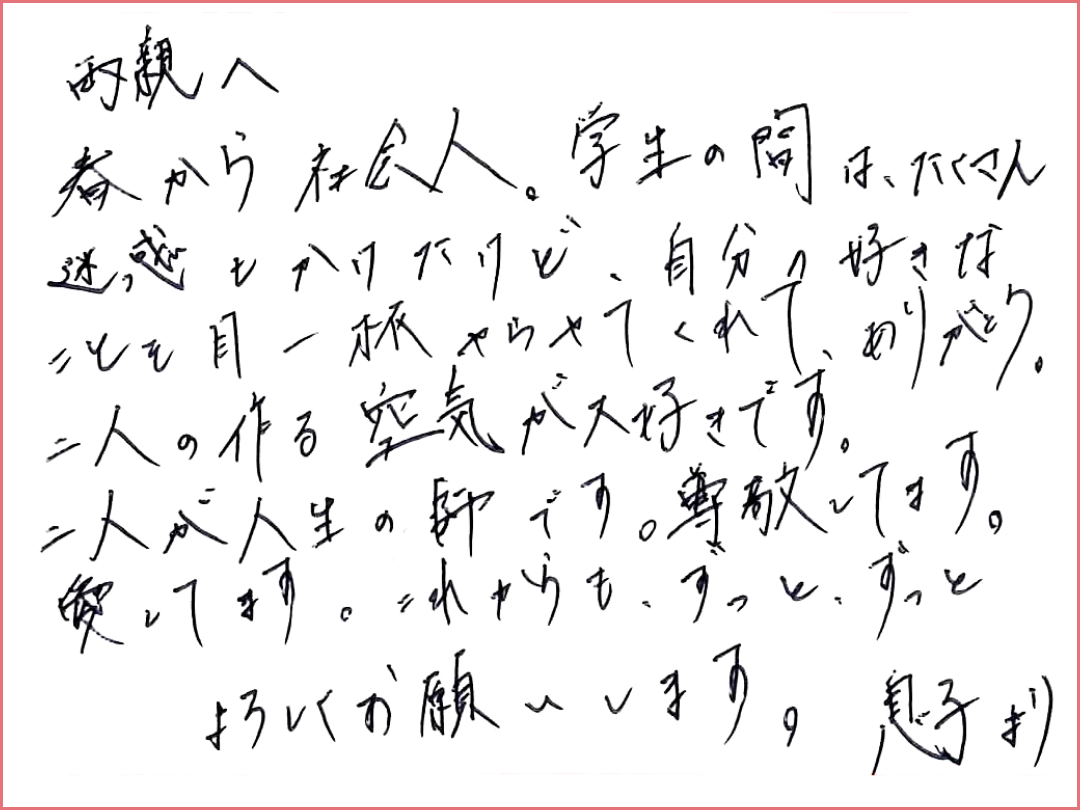 両親へ
春から社会人。学生の間は、たくさん
迷惑もかけたけど、自分の好きな
ことを目一杯やらせてくれて、ありがとう。
二人の作る空気が大好きです。
二人が人生の師です。尊敬してます。
愛してます。これからも、ずっと、ずっと
よろしくお願いします。 息子より